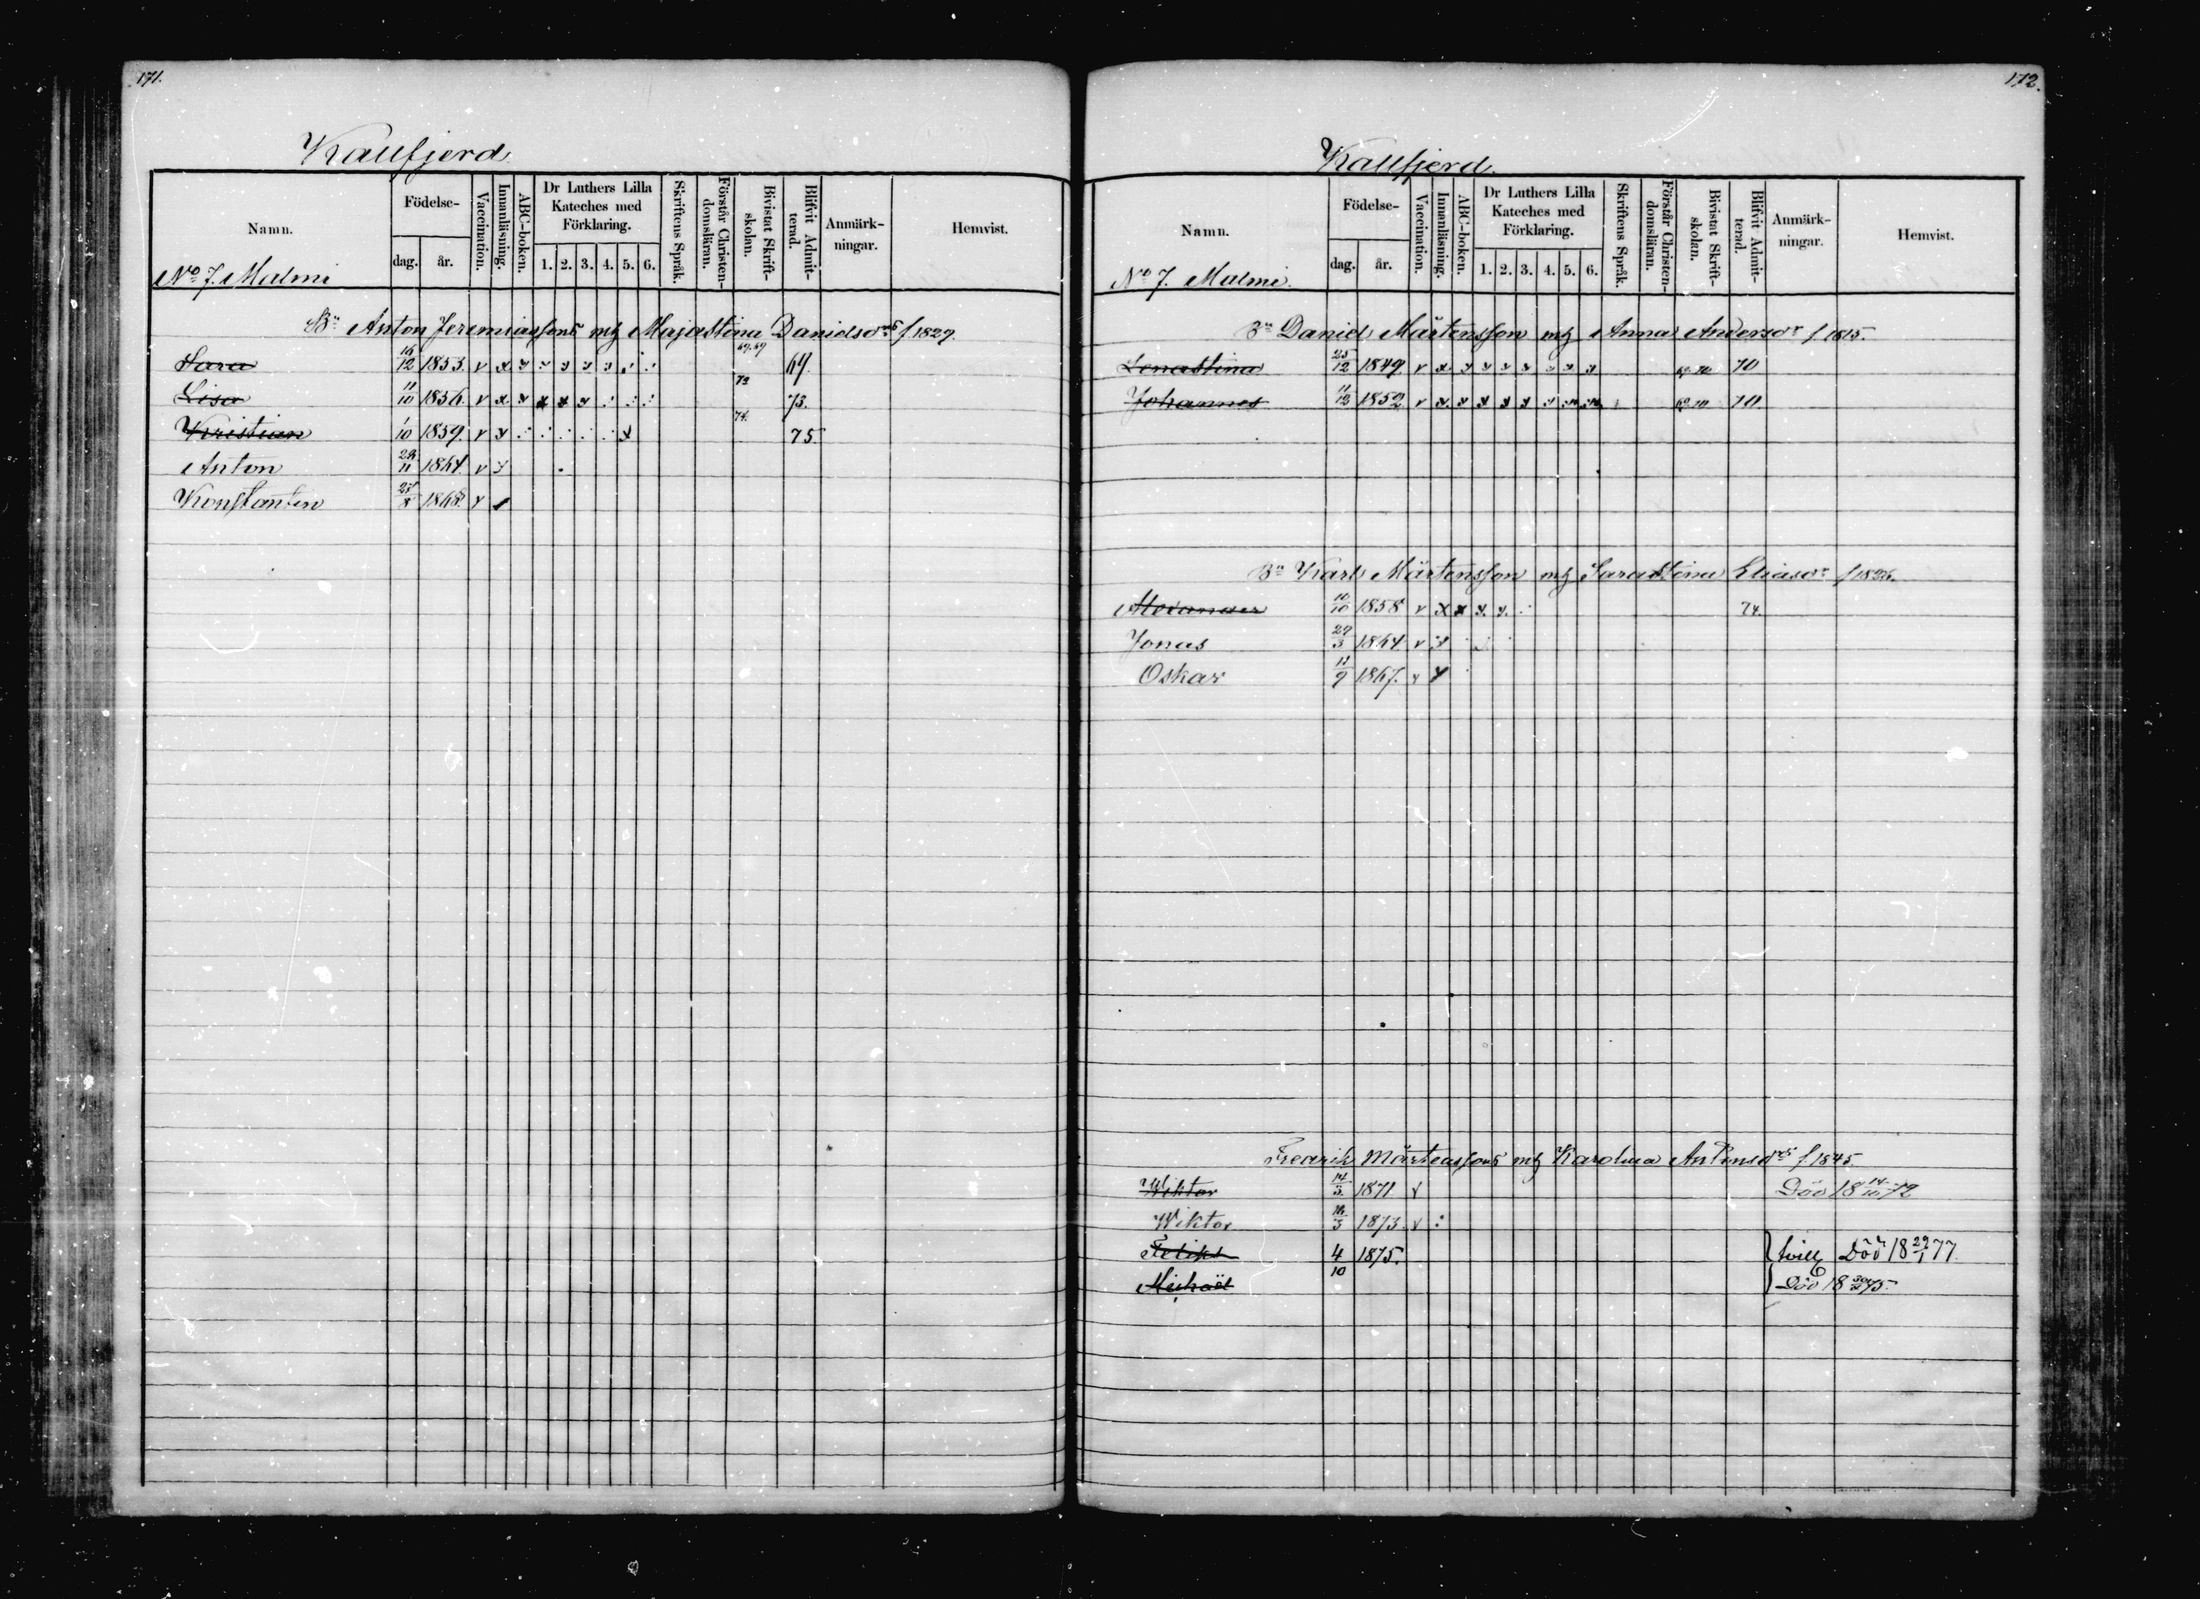 171.
Kallfjerd
Namn.
Födelse-
dag.
år.
Vaccination.
Innanläsning.
ABC-boken.
Dr Luthers Lilla Kateches med Förklaring.
1. 2. 3. 4. 5. 6.
Skriftens Språk.
Förstår Christendomsläran.
Bivistat Skriftskolan.
Blifvit Admitterad.
Anmärkningar.
Hemvist.
No 7. Malmi
Bn Anton Jeremiassons mtg Majastina Danielsdr f 1829.
Sara 16/12 1853. v x 69.
Lisa 11/10 1856. v x x 73.
Kristian 1/10 1859. v 74. 75.
Anton 1864. v
Konstantin 1868. v
172.
Kallfjerd.
Namn.
Födelse-
dag.
år.
Vaccination.
Innanläsning.
ABC-boken.
Dr Luthers Lilla Kateches med Förklaring.
1. 2. 3. 4. 5. 6.
Skriftens Språk.
Förstår Christendomsläran.
Bivistat Skriftskolan.
Blifvit Admitterad.
Anmärkningar.
Hemvist.
No 7. Malmi.
Bn Daniel Mårtensson mtg Anna Andersdr f 1815.
Lenastina 25/12 1849. v 70
Johannes 1852 v 70.
Bn Karl Mårtensson mtg Sarastina Eliasdr
10/10 1858 v x x 74.
Jonas 29/3 1864. v
Oskar 11/9 1867. v
Fredrik Mårtenssons mtg Karolina Antonsdr f 1845.
Wiktor 14/3 1871 v Död 18 14/10 72
Wiktor 16/3 1873. v
Feliks 4/10 1875. tvill Död 18 29/1 77.
Mickaël Död 18 75.